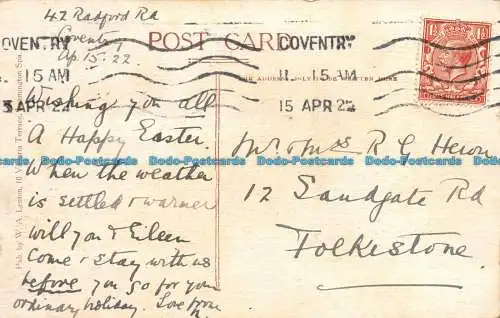 42 Radford Rd
Coventry
Ap. 15. 22
POST CARD
COVENTRY
11. 15 AM
15 APR 22
OVENTRY
15 AM
5 APR 22
THE ADDRESS ONLY TO BE WRITTEN HERE
Wishing you all
A Happy Easter.
When the weather
is settled & warmer
will you & Eileen
Come & stay with us
before you go for your
ordinary holiday. Love from
Mr & Mrs R G Heron
12 Sandgate Rd
Folkestone
Pub. by W. A. Lenton, Victoria Terrace, Leamington Spa
Dodo-Postcards Dodo-Postcards Dodo-Postcards Dodo-Postcards